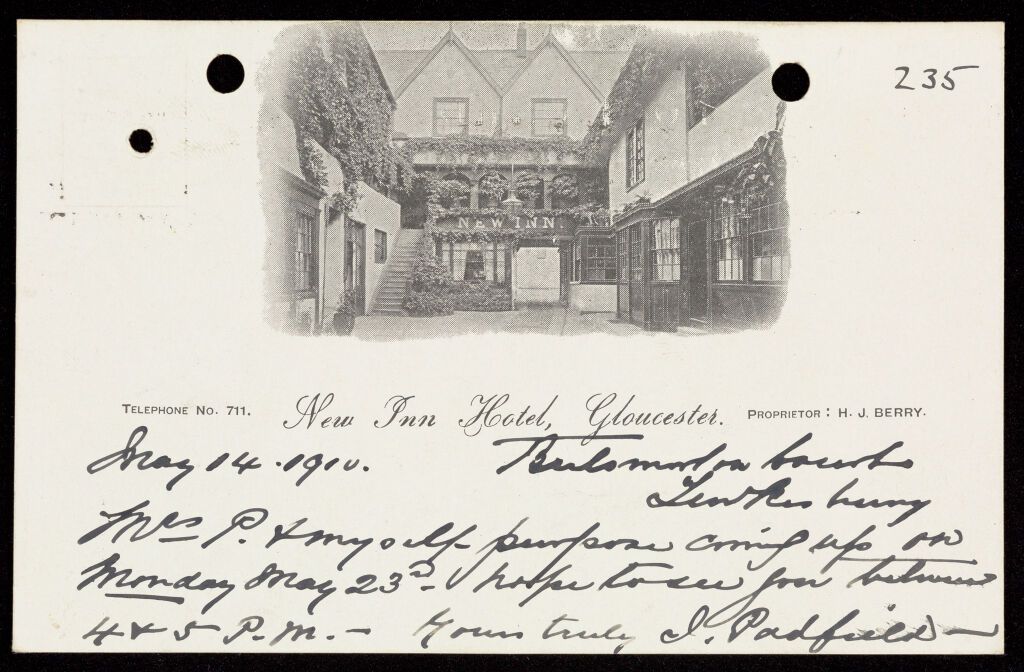 235
NEW INN
TELEPHONE NO. 711. New Inn Hotel, Gloucester. PROPRIETOR: H. J. BERRY.
May 14. 1910. Birtsmorton Court
Tewkesbury
Mrs P. & myself purpose coming up on
Monday May 23rd hope to see you between
4 & 5 P.M. – Yours truly I. Padfield –